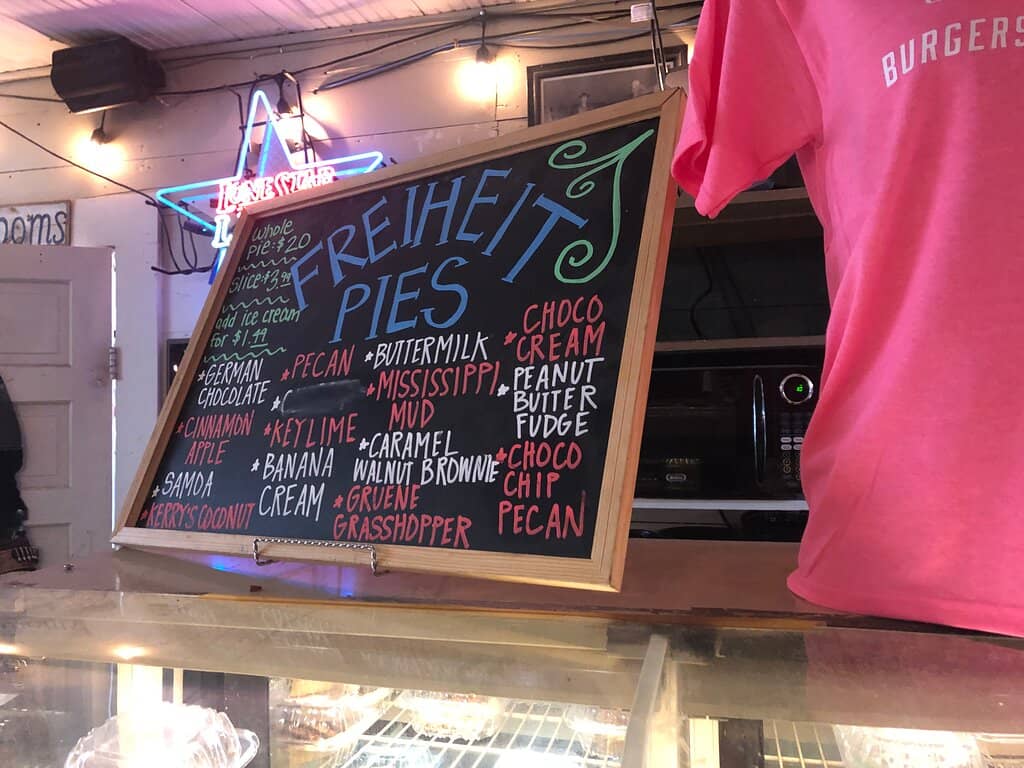 BURGERS
ooms
LONE STAR
FREIHEIT
PIES
whole
Pie: $20
slice: $3.99
add ice cream
for $1.49
*GERMAN
CHOCOLATE
*CINNAMON
APPLE
*SAMOA
*KERRY'S COCONUT
*PECAN
*C
*KEYLIME
*BANANA
CREAM
*BUTTERMILK
*MISSISSIPPI
MUD
*CARAMEL
WALNUT BROWNIE
*GRUENE
GRASSHOPPER
*CHOCO
CREAM
*PEANUT
BUTTER
FUDGE
*CHOCO
CHIP
PECAN